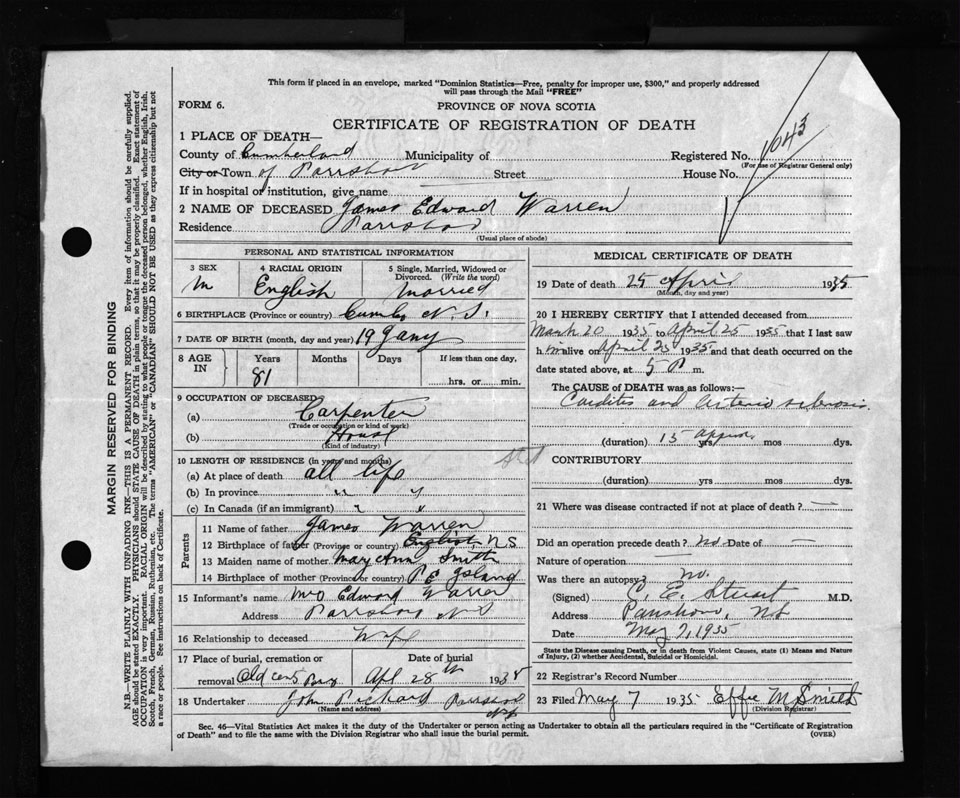 This form if placed in an envelope, marked "Dominion Statistics—Free, penalty for improper use, $300," and properly addressed
will pass through the Mail "FREE"
FORM 6.
PROVINCE OF NOVA SCOTIA
CERTIFICATE OF REGISTRATION OF DEATH
1 PLACE OF DEATH—
County of Cumberland Municipality of Registered No. 1043
(For use of Registrar General only)
City or Town of Parrsboro Street House No.
If in hospital or institution, give name
2 NAME OF DECEASED James Edward Warren
Residence Parrsboro
(Usual place of abode)
PERSONAL AND STATISTICAL INFORMATION
3 SEX 4 RACIAL ORIGIN 5 Single, Married, Widowed or Divorced. (Write the word)
M English Married
6 BIRTHPLACE (Province or country) Cumb. N.S.
7 DATE OF BIRTH (month, day and year) 19 Jany
8 AGE IN Years Months Days If less than one day,
81 hrs. or min.
9 OCCUPATION OF DECEASED
(a) Carpenter
(Trade or occupation or kind of work)
(b) House
(Kind of industry)
10 LENGTH OF RESIDENCE (in years and months)
(a) At place of death all life
(b) In province " "
(c) In Canada (if an immigrant) " "
Parents
11 Name of father James Warren
12 Birthplace of father (Province or country) English N S
13 Maiden name of mother Mary Ann Smith
14 Birthplace of mother (Province or country) P E Island
15 Informant's name Mrs Edward Warren
Address Parrsboro N S
16 Relationship to deceased Wife
17 Place of burial, cremation or removal Date of burial
Old cem Apl 28th 1935
18 Undertaker John Pickard Parrsboro NS
(Name and address)
MEDICAL CERTIFICATE OF DEATH
19 Date of death 25 April 1935
(Month, day and year)
20 I HEREBY CERTIFY that I attended deceased from
March 20 1935 to April 25 1935 that I last saw
h im alive on April 25 1935 and that death occurred on the
date stated above, at 5 P m.
The CAUSE OF DEATH was as follows:—
Carditis and Arterio sclerosis.
(duration) 15 approx. yrs. mos dys.
CONTRIBUTORY
(duration) yrs. mos dys.
21 Where was disease contracted if not at place of death? —
Did an operation precede death? No Date of —
Nature of operation —
Was there an autopsy? no.
(Signed) C. E. Stuart M.D.
Address Parrsboro, NS
Date May 7, 1935
State the Disease causing Death, or in death from Violent Causes, state (1) Means and Nature of Injury, (2) whether Accidental, Suicidal or Homicidal.
22 Registrar's Record Number
23 Filed May 7 1935 Effie M. Smith
(Division Registrar)
Sec. 46—Vital Statistics Act makes it the duty of the Undertaker or person acting as Undertaker to obtain all the particulars required in the "Certificate of Registration
of Death" and to file the same with the Division Registrar who shall issue the burial permit.
(OVER)
MARGIN RESERVED FOR BINDING
N.B.—WRITE PLAINLY WITH UNFADING INK—THIS IS A PERMANENT RECORD. Every item of information should be carefully supplied.
AGE should be stated EXACTLY. PHYSICIANS should STATE CAUSE OF DEATH in plain terms, so that it may be properly classified. Exact statement of
OCCUPATION is very important. RACIAL ORIGIN will be described by stating to what people or tongue the deceased person belonged, whether English, Irish,
Scotch, French, German, Russian, Ruthenian, etc. The terms "AMERICAN" or "CANADIAN" SHOULD NOT BE USED as they express citizenship but not
a race or people. See instructions on back of Certificate.